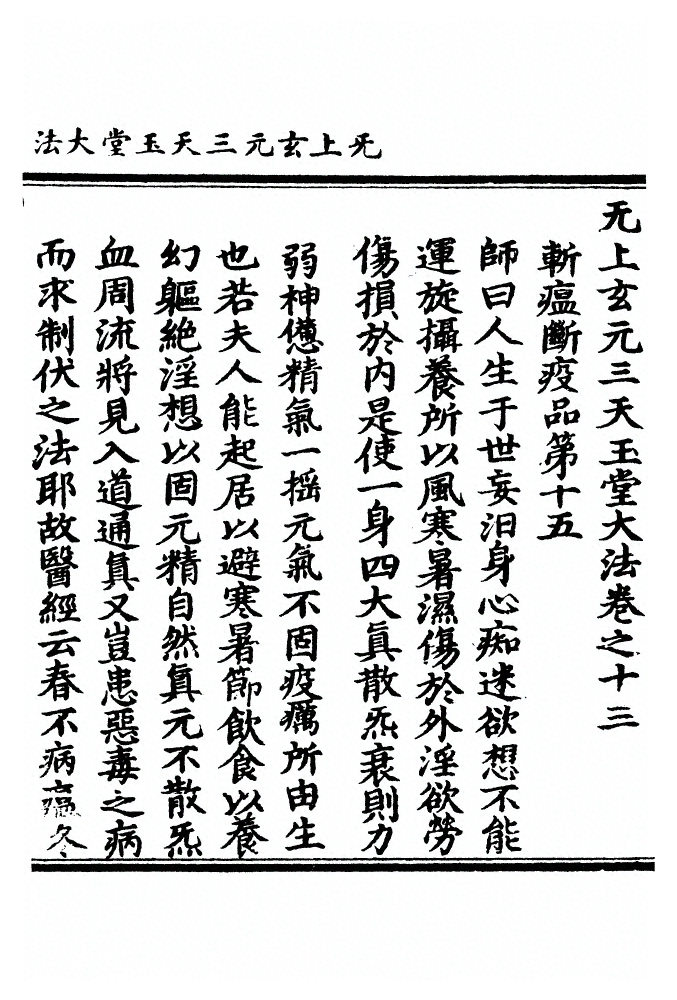 无上玄元三天玉堂大法
无上玄元三天玉堂大法卷之十三
斬瘟斷疫品第十五
師曰人生于世妄汨身心痴迷欲想不能
運旋攝養所以風寒暑濕傷於外淫欲勞
傷損於内是使一身四大真散炁衰則力
弱神憊精氣一摇元氣不固疫癘所由生
也若夫人能起居以避寒暑節飲食以養
幻軀絶淫想以固元精自然真元不散炁
血周流將見入道通真又豈患惡毒之病
而求制伏之法耶故醫經云春不病瘟冬